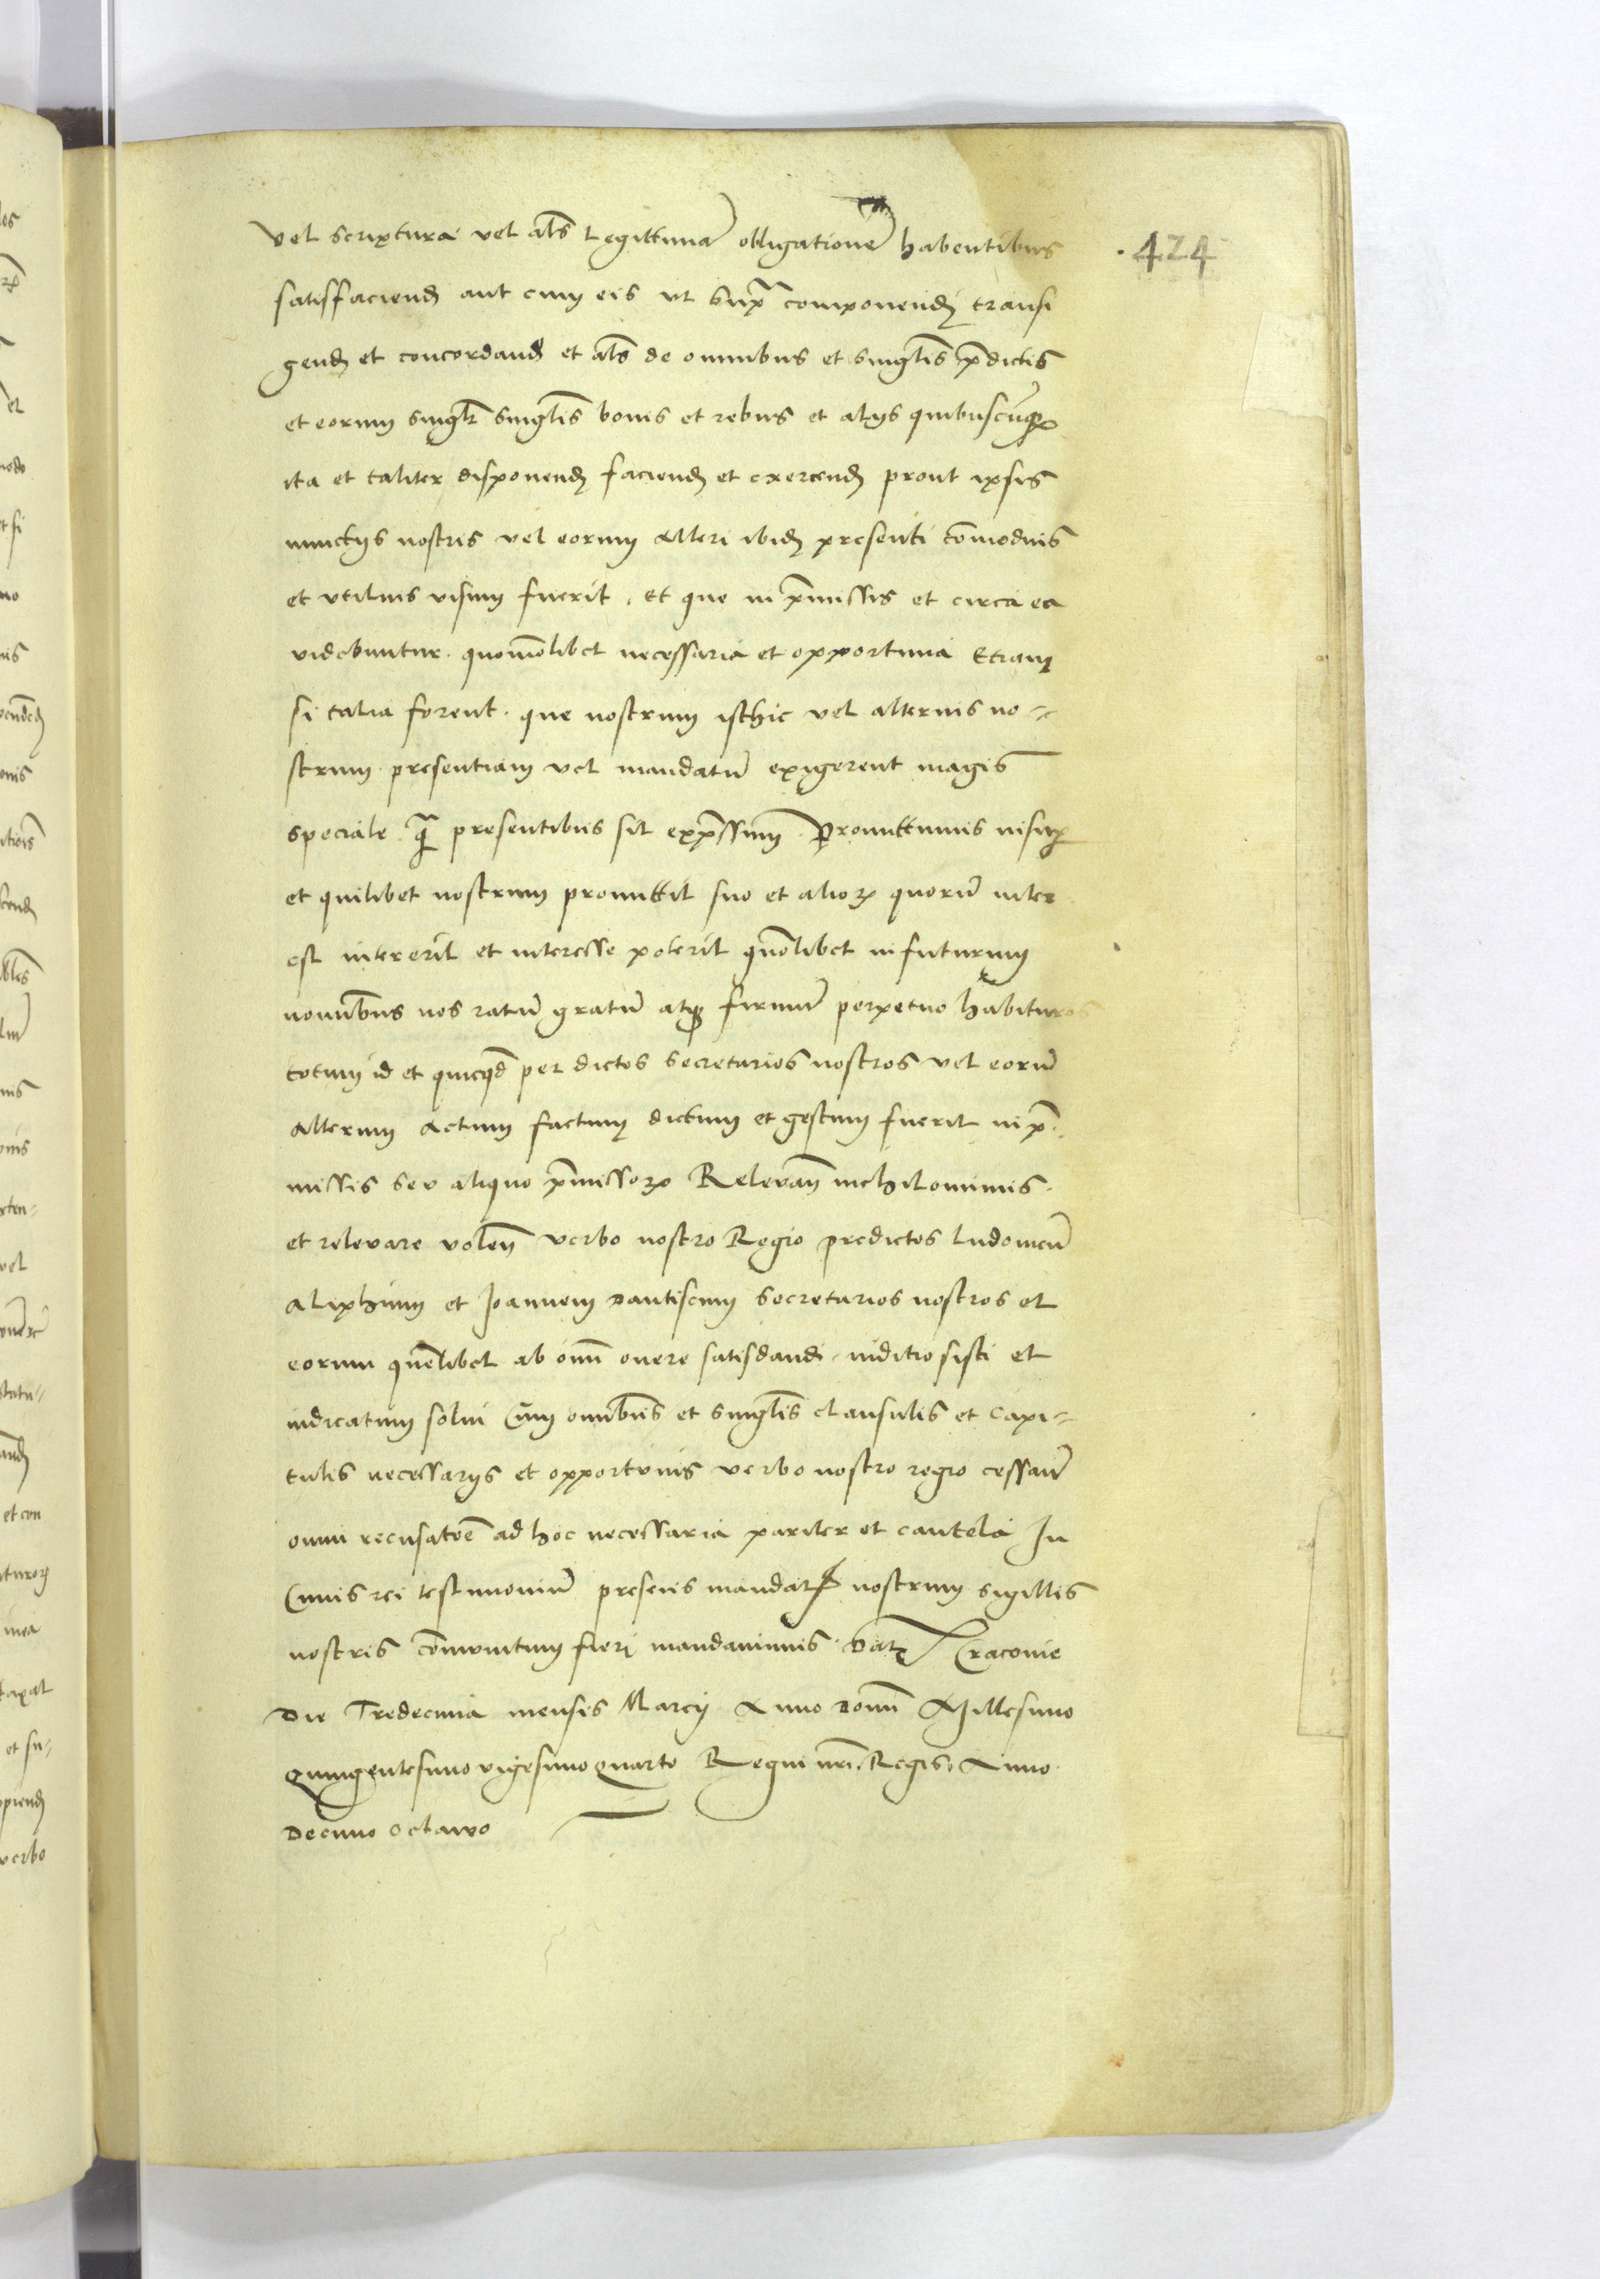 ·424
vel scriptura vel al͞s Legittima͞ obligatione͞ habentibus
satisfaciend aut cum eis ut supra componendi transi
gend et concordand et al͞s de omnibus et singl͞is p͞dictis
et eorum singl͞r singl͞is bonis et rebus et alijs quibuscu͞q
ita et taliter disponend faciend et exercend prout ipsis
nunctijs nostris vel eorum Alteri ibid presenti co͞modius
et utilius visum fuerit. Et que in p͞missis et circa ea
videbuntur. quomo͞libet necessaria et opportuna Etiam
si talia forent. que nostrum isthic vel alterius no=
strum presentiam vel mandatu͞ exigerent magis
speciale q͞ presentibus sit exp͞ssum. Promittimus insup
et quilibet nostrum promittit suo et alioꝝ quoru͞ inter
est intererit et interesse poterit quo͞libet in futurum
nomi͞bus nos ratu͞ gratu͞ atq firmu͞ perpetuo habituros
totum id et quicq͞d per dictos secretarios nostros vel eoru͞
Alterum Actum factum dictum et gestum fuerit in p͞
missis seu aliquo p͞missoꝝ Releva͞n nichilominus.
et relevare vole͞n verbo nostro Regio predictos Ludovicu͞
Aliphium et Joannem Dantiscum secretarios nostros et
eorum que͞libet ab om͞i onere satisdandi. iuditio sisti et
iudicatum solui Cum om͞ibus et singl͞is clausulis et capi=
tulis necessarijs et opportunis verbo nostro regio cessan͞
omni recusatio͞e ad hoc necessaria pariter et cautela In
Cuius rei testimoniu͞ presens mandat nostrum sigillis
nostris co͞munitum fieri mandavimus. Dat Cracovie
Die Tredecima mensis Marcij Anno Dom͞ Millesimo
Quingentesimo vigesimo quarto Regni n͞ri Regis Anno
Decimo octavo